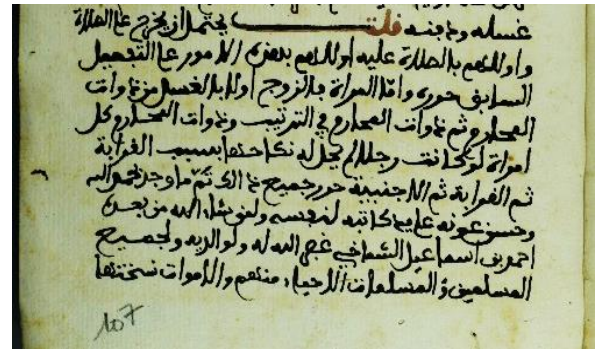 غسله ودفنه قلت يحتمل ان يخرج على الصلاة
واولاهم بالصلاة عليه اولاهم بهذه الامور على التفصيل
السابق حوره واما المراة فالزوج اولى بالغسل من ذوات
المحارم ثم ذوات المحارم في الترتيب وذوات المحارم كل
امراة لو كانت رجلا لم يحل له نكاحها بسبب القرابة
ثم القرابة ثم الاجنبية حور جميع ذلك ثم ما وجد بحمد الله
وحسن عونه على يد كاتبه لنفسه ولمن شاء الله من بعده
احمد بن اسماعيل الشماخي غفر الله له ولوالديه ولجميع
المسلمين والمسلمات الاحياء منهم والاموات نسختها
107